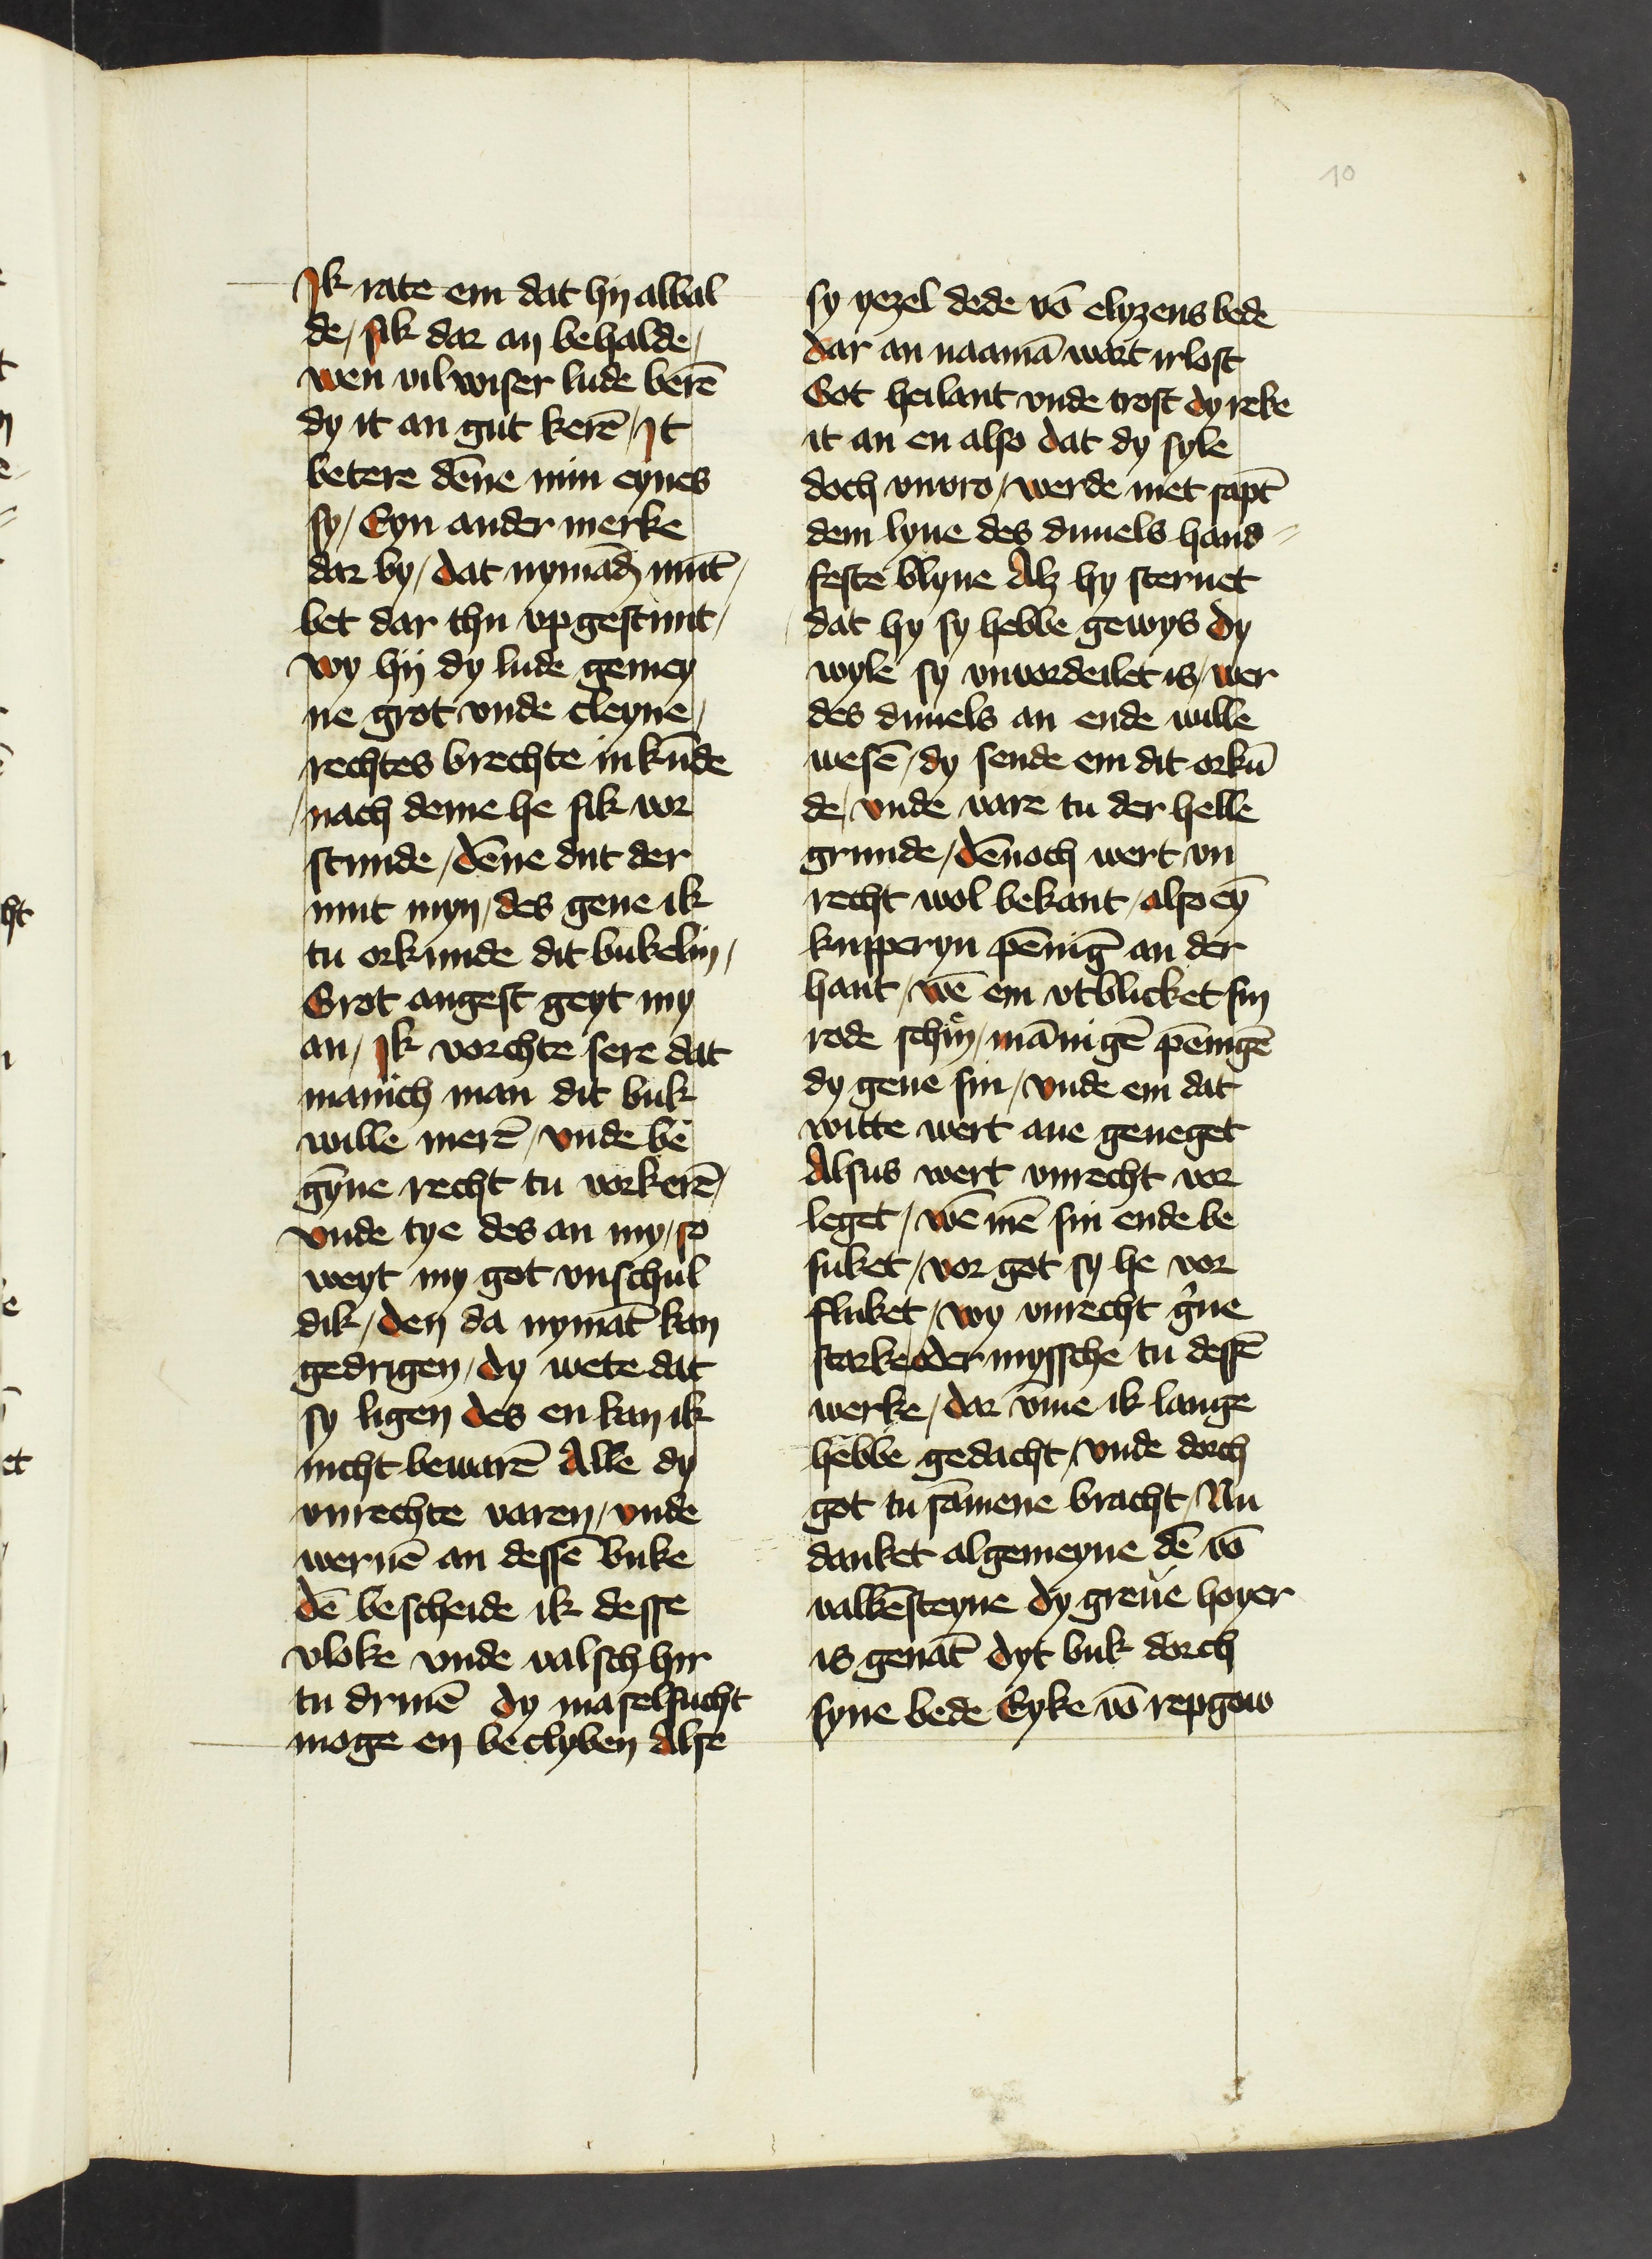 10
Ik rate em dat hij albal
de / sik dar an behalde /
wen vil wiser lude berē
dy it an gut kerē / It
betere dēne min eynes
sy / Eyn ander merke
dar by / dat nymād mut /
bet dar thu vpgestunt /
wy hij dy lude gemey
ne grot vnde cleyne /
rechtes brechte in kūde
/ nach deme he sik vor
stunde / dēne dut der
mut myn / des geue ik
tu orkunde dit bukelin /
Grot angest geyt my
an / Ik vorchte sere dat
manich man dit buk
wille merē / vnde be
gȳne recht tu vorkerē /
vnde tye des an my / so
weyt my got vnschul
dik / den da nymāt kan
gedrigen / dy wete dat
sy ligen des en kan ik
nicht bewarē Alle dy
vnrechte varen / vnde
weruē an dessē buke
dē bescheide ik desse
vloke vnde valsch hir
tu driuē dy maselsucht
moge en becliben Alse
sy yezel dede vō elyzeus bede
dar an naamā wart irlost
Got heilant vnde trost dy reke
it an en also dat dy syle
doch vnvro / werde met sapt
dem lyue des duuels hand=
feste blyue Alz hy steruet
dat hy sy hebbe gewys dy
wyle sy vnvordeilet is / wer
des duuels an ende wille
wesē / dy sende em dit orkū
de / vnde vare tu der helle
grunde / dēnoch wert vn
recht wol bekant / also eȳ
kupperyn pēnig an der
hant / wē em vtblicket sin
rode schin / mānigē pēnigē
dy gene sin / vnde em dat
witte wert aue geneget
Alsus wert vnrecht vor
leget / wē mē sin ende be
suket / vor got sy he vor
fluket / wy vnrecht g'ne
starke oder myssche tu dessē
werke / dar vme ik lange
hebbe gedacht / vnde dorch
got tu sāmene bracht / Nu
danket algemeyne dē vō
valkēsteyne dy greue hoyer
is genāt dyt buk dorch
syne bede Eyke vō repgow